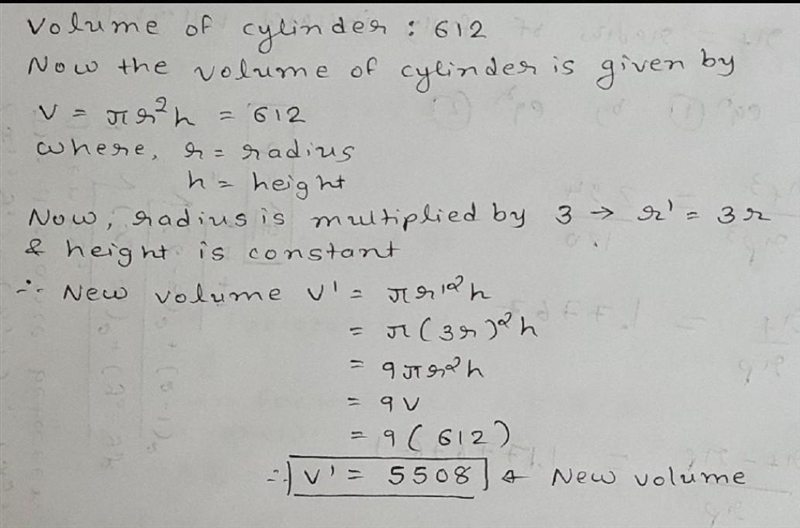 Volume of cylinder : 612
Now the volume of cylinder is given by
V = πr²h = 612
where, r = radius
h = height
Now, radius is multiplied by 3 → r' = 3r
& height is constant
∴ New volume V' = πr'²h
= π(3r)²h
= 9πr²h
= 9V
= 9(612)
∴ V' = 5508 ← New volume